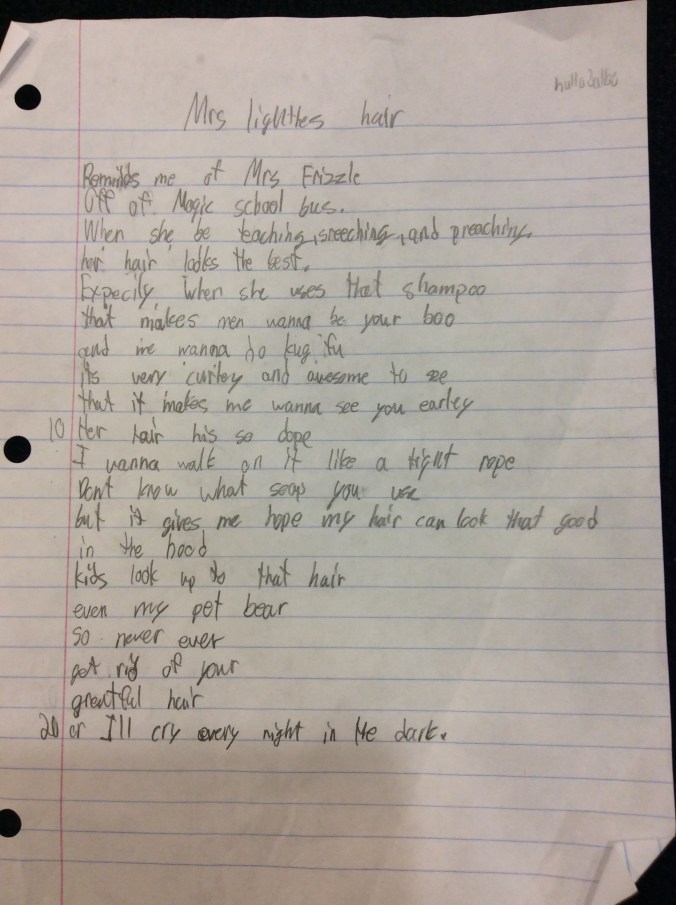 hullabaloo
Mrs lighttes hair
Reminds me of Mrs Frizzle
Off of Magic school bus.
When she be teaching, sreeching, and preaching.
her hair looks the best.
Expecily when she uses that shampoo
that makes men wanna be your boo
and me wanna do kug ifu
its very curley and awesome to see
that it makes me wanna see you earley
10 Her hair his so dope
I wanna walk on it like a tight rope
Dont know what soap you use
but it gives me hope my hair can look that good
in the hood
kids look up to that hair
even my pet bear
so never ever
get rid of your
greatful hair
20 or I'll cry every night in the dark.